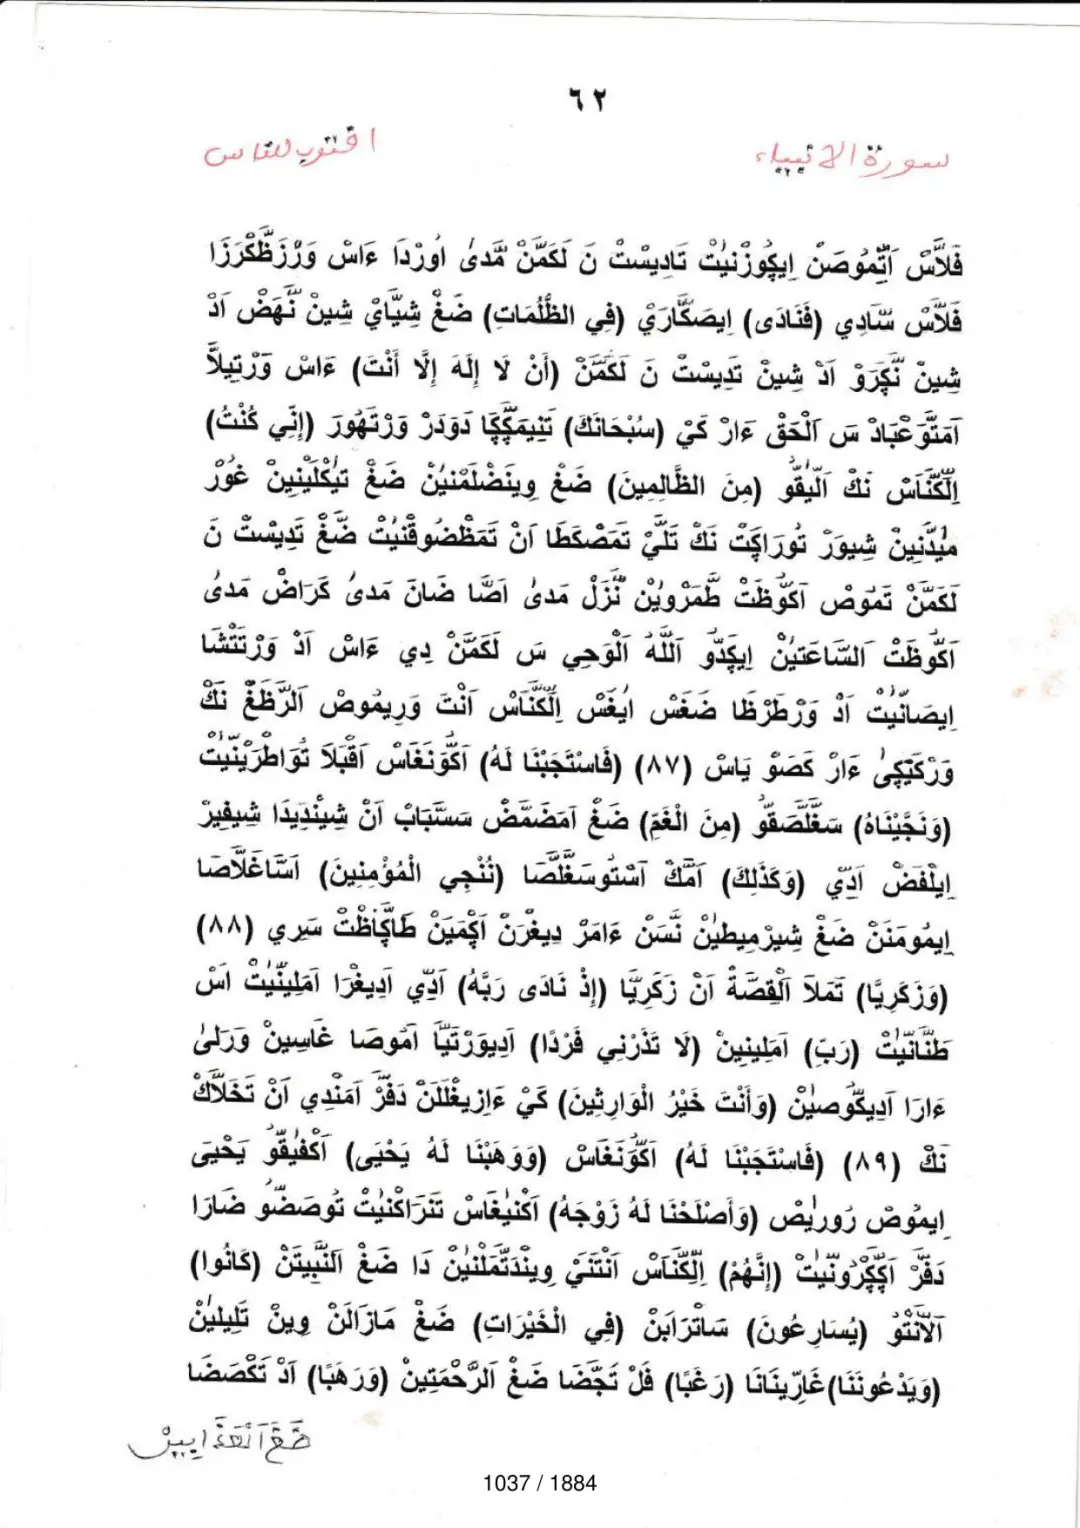 ٦٢
سورة الانبياء
اقترب للناس
فَلَاسْ اَتِّمُوصَنْ اِيكُوزْنيٰتْ تَادِيسْتْ نَ لَكَمَّنْ مَّدىٰ اوُرْدَا ءَاسْ وَرْزَظَّكْرَزَا
فَلَاسْ سَّادِي (فَنَادَى) اِيصَكَّارَيْ (فِي الظُّلُمَاتِ) ضَغْ شِيَّايْ شِينْ نَّهَضْ اَدْ
شِينْ نَّكِرَوْ اَدْ شِينْ تَدِيسْتْ نَ لَكَمَّنْ (أَنْ لَا إِلَهَ إِلَّا أَنْتَ) ءَاسْ وَرْتِيلَّا
اَمَتَّوْعْبَادْ سَ اَلْحَقْ ءَارْ كَيْ (سُبْحَانَكَ) تَنِيمَكِّكَا دَوَدَرْ وَرْتَهُورَ (إِنِّي كُنْتُ)
اِلْكَنَّاسْ نَكْ اَلَّيقُّو (مِنَ الظَّالِمِينَ) ضَغْ وِينَضْلَمْنيٰنْ ضَغْ تيٰكْلَيْنِينْ غُوْرْ
ميٰدَّنِينْ شِيوَرْ تُورَاكِتْ نَكْ تَلَيّْ تَمَصْكَطَا اَنْ تَمَظْضُوقْنيٰتْ ضَغّْ تَدِيسْتْ نَ
لَكَمَّنْ تَمُوصْ اَكُّوظَتْ طَمَرْوِينْ نُّزَلْ مَدىٰ اَضَّا ضَانَ مَدىٰ كَرَاضْ مَدىٰ
اَكُّوظَتْ اَلسَّاعَتيٰنْ اِيكَدَّو اَللَّهُ اَلْوَحِي سَ لَكَمَّنْ دِي ءَاسْ اَدْ وَرْتَتْشَا
اِيصَانّيٰتْ اَدْ وَرْطَرْظَا ضَغَسْ ايٰغَسْ اِلْكَنَّاسْ اَنْتَ وَرِيمُوصْ اَلرَّظَغْ نَكْ
وَرْكَيّكىٰ ءَارْ كَصَوْ يَاسْ (٨٧) (فَاسْتَجَبْنَا لَهُ) اَكُّونَغَاسْ اَقْبَلَا تُوَاطَرَيْنيٰتْ
(وَنَجَّيْنَاهُ) سَغَلَّصَقُّو (مِنَ الْغَمِّ) ضَغْ اَمَضْمَضْ سَسَّبَابْ اَنْ شِينْدِيدَا شِيفِيرْ
اِيلْفَضْ اَدِّي (وَكَذَلِكَ) اَمَّكْ اَسْتُوسَغْلَّصَا (نُنْجِي الْمُؤْمِنِينَ) اَسَّاغَلَّاصَا
اِيمُومَنَنْ ضَغْ شِيرْمِيطيٰنْ نَّسَنْ ءَامَرْ دِيغْرَنْ اَكِّمَينْ طَاكَّاظْتْ سَرِي (٨٨)
(وَزَكَرِيَّا) تَمَلَا اَلْقِصَّةْ اَنْ زَكَرِيَّا (إِذْ نَادَى رَبَّهُ) اَدِّي اَدِيغْرَا اَمَلِينيٰتْ اَسْ
طَنَّانّيٰتْ (رَبِّ) اَمَلِينِينْ (لَا تَذَرْنِي فَرْدًا) اَدِيوَرْتَيَّا اَمُوصَا غَاسِينْ وَرَلىٰ
ءَارَا اَدِيكُّوصيٰنْ (وَأَنْتَ خَيْرُ الْوَارِثِينَ) كَيْ ءَازِيغْلَلَنْ دَفَرّْ اَمَنْدِي اَنْ تَخَلَّاكْ
نَكْ (٨٩) (فَاسْتَجَبْنَا لَهُ) اَكُّونَغَاسْ (وَوَهَبْنَا لَهُ يَحْيَى) اَكْفيٰقُّو يَحْيَى
اِيمُوصْ رُوريٰصْ (وَأَصْلَحْنَا لَهُ زَوْجَهُ) اَكْنيٰغَاسْ تَنَرَاكْنيٰتْ تُوصَضُّو ضَارَا
دَفَرّْ اَكِّكَرُونّيٰتْ (إِنَّهُمْ) اِلْكَنَّاسْ اَنْتَنَيْ وِينْدَتَّمَلْنيٰنْ دَا ضَغْ اَلنَّبِيتَنْ (كَانُوا)
اَلَانْتُو (يُسَارِعُونَ) سَاتْرَابَنْ (فِي الْخَيْرَاتِ) ضَغْ مَازَالَنْ وِينْ تَلِيلِينْ
(وَيَدْعُونَنَا) غَارِّينَانَا (رَغَبًا) فَلْ تَجَّضَا ضَغْ اَلرَّحْمَتِينْ (وَرَهَبًا) اَدْ تَكْصَضَا
ضَغْ اَلْعَذَابِينْ
1037 / 1884